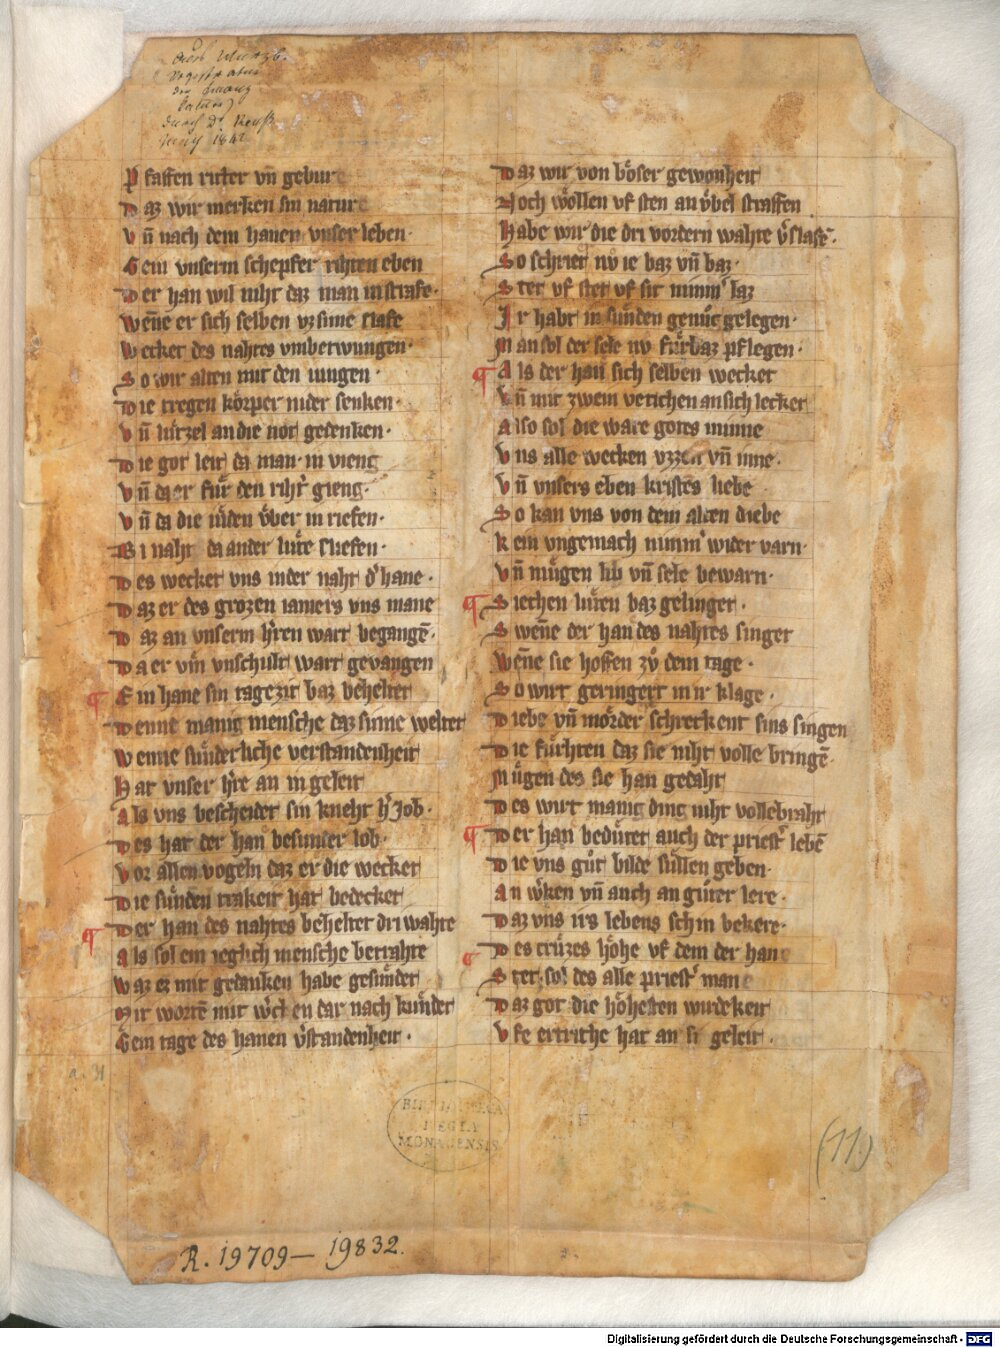 durch Dr. Reuß
Pfaffen ritter vn̄ gebure
Daz wir merken sin nature
Vn̄ nach dem hanen vnser leben·
Gein vnserm schepfer rihten eben
Der han wil niht daz man in strafe·
Wen̄e er sich selben vz sime slafe
Wecket des nahtes vmbetwungen·
So wir alten mit den iungen·
Die tregen kôrper nider senken·
Vn̄ lu̍tzel an die not gedenken·
Die got leit da man in vieng
Vn̄ da er fu̍r den riht᾽ gieng·
Vn̄ da die iu̍den v̍ber in riefen·
Bi naht da ander lu̍te sliefen·
Des wecket vns in der naht d᾽ hane·
Daz er des grozen iamers vns mane
Daz an vnserm h᾽ren wart begangē·
Da er vm̄ vnschult wart gevangen
¶ Ein hane sin tagezit baz beheltet
Denne manig mensche daz sinne weltet
Wenne su̍nderliche verstandenheit
Hat vnser h᾽re an in geleit
Als vns bescheidet sin kneht h᾽ Job·
Des hat der han besunder lob·
Vor allen vogeln daz er die wecket
Die su̍nden trakeit hat bedecket
¶ Der han des nahtes beheltet dri wahte
Als sol ein ieglich mensche betrahte
Waz ez mit gedanken habe gesu̍ndet
Mit wortē mit w᾽cken dar nach ku̍ndet
Gein tage des hanen v᾽standenheit·
Daz wir von bôser gewonheit
Noch wôllen vf sten an v̍bel straffen
Habe wir die dri vordern wahte v᾽slafē·
So schriet nv ie baz vn̄ baz·
Stet vf stet vf sit nimm᾽ laz
Ir habt in su̍nden genůc gelegen·
Man sol der sele nv fu̍rbaz pflegen·
¶ Als der han sich selben wecket
Vn̄ mit zwein vetichen an sich lecket
Also sol die ware gotes minne
Vns alle wecken vzzen vn̄ inne·
Vn̄ vnsers eben kristes liebe
So kan vns von dem alten diebe
Kein vngemach nimm᾽ wider varn·
Vn̄ mu̍gen lib vn̄ sele bewarn·
¶ Siechen lu̍ten baz gelinget·
Swen̄e der han des nahtes singet
Wen̄e sie hoffen zů dem tage·
So wirt geringert in ir klage·
Diebe vn̄ môrder schreckent sins singen
Die fu̍rhten daz sie niht volle bringē·
Mu̍gen des sie han gedaht
Des wirt manig ding niht vollebraht
¶ Der han bedu̍tet auch der priest᾽ lebē
Die vns gůt bilde su̍llen geben·
An w᾽ken vn̄ auch an gůter lere·
Daz vns irs lebens schin bekere·
¶ Des cru̍zes hôhe vf dem der hane
Stet sol des alle priest᾽ mane
Daz got die hôhesten wirdekeit
Vfe ertriche hat an si geleit·
BIBLIOTHECA
REGIA
MONACENSIS
(11.)
R. 19709 – 19832.
Digitalisierung gefördert durch die Deutsche Forschungsgemeinschaft - DFG